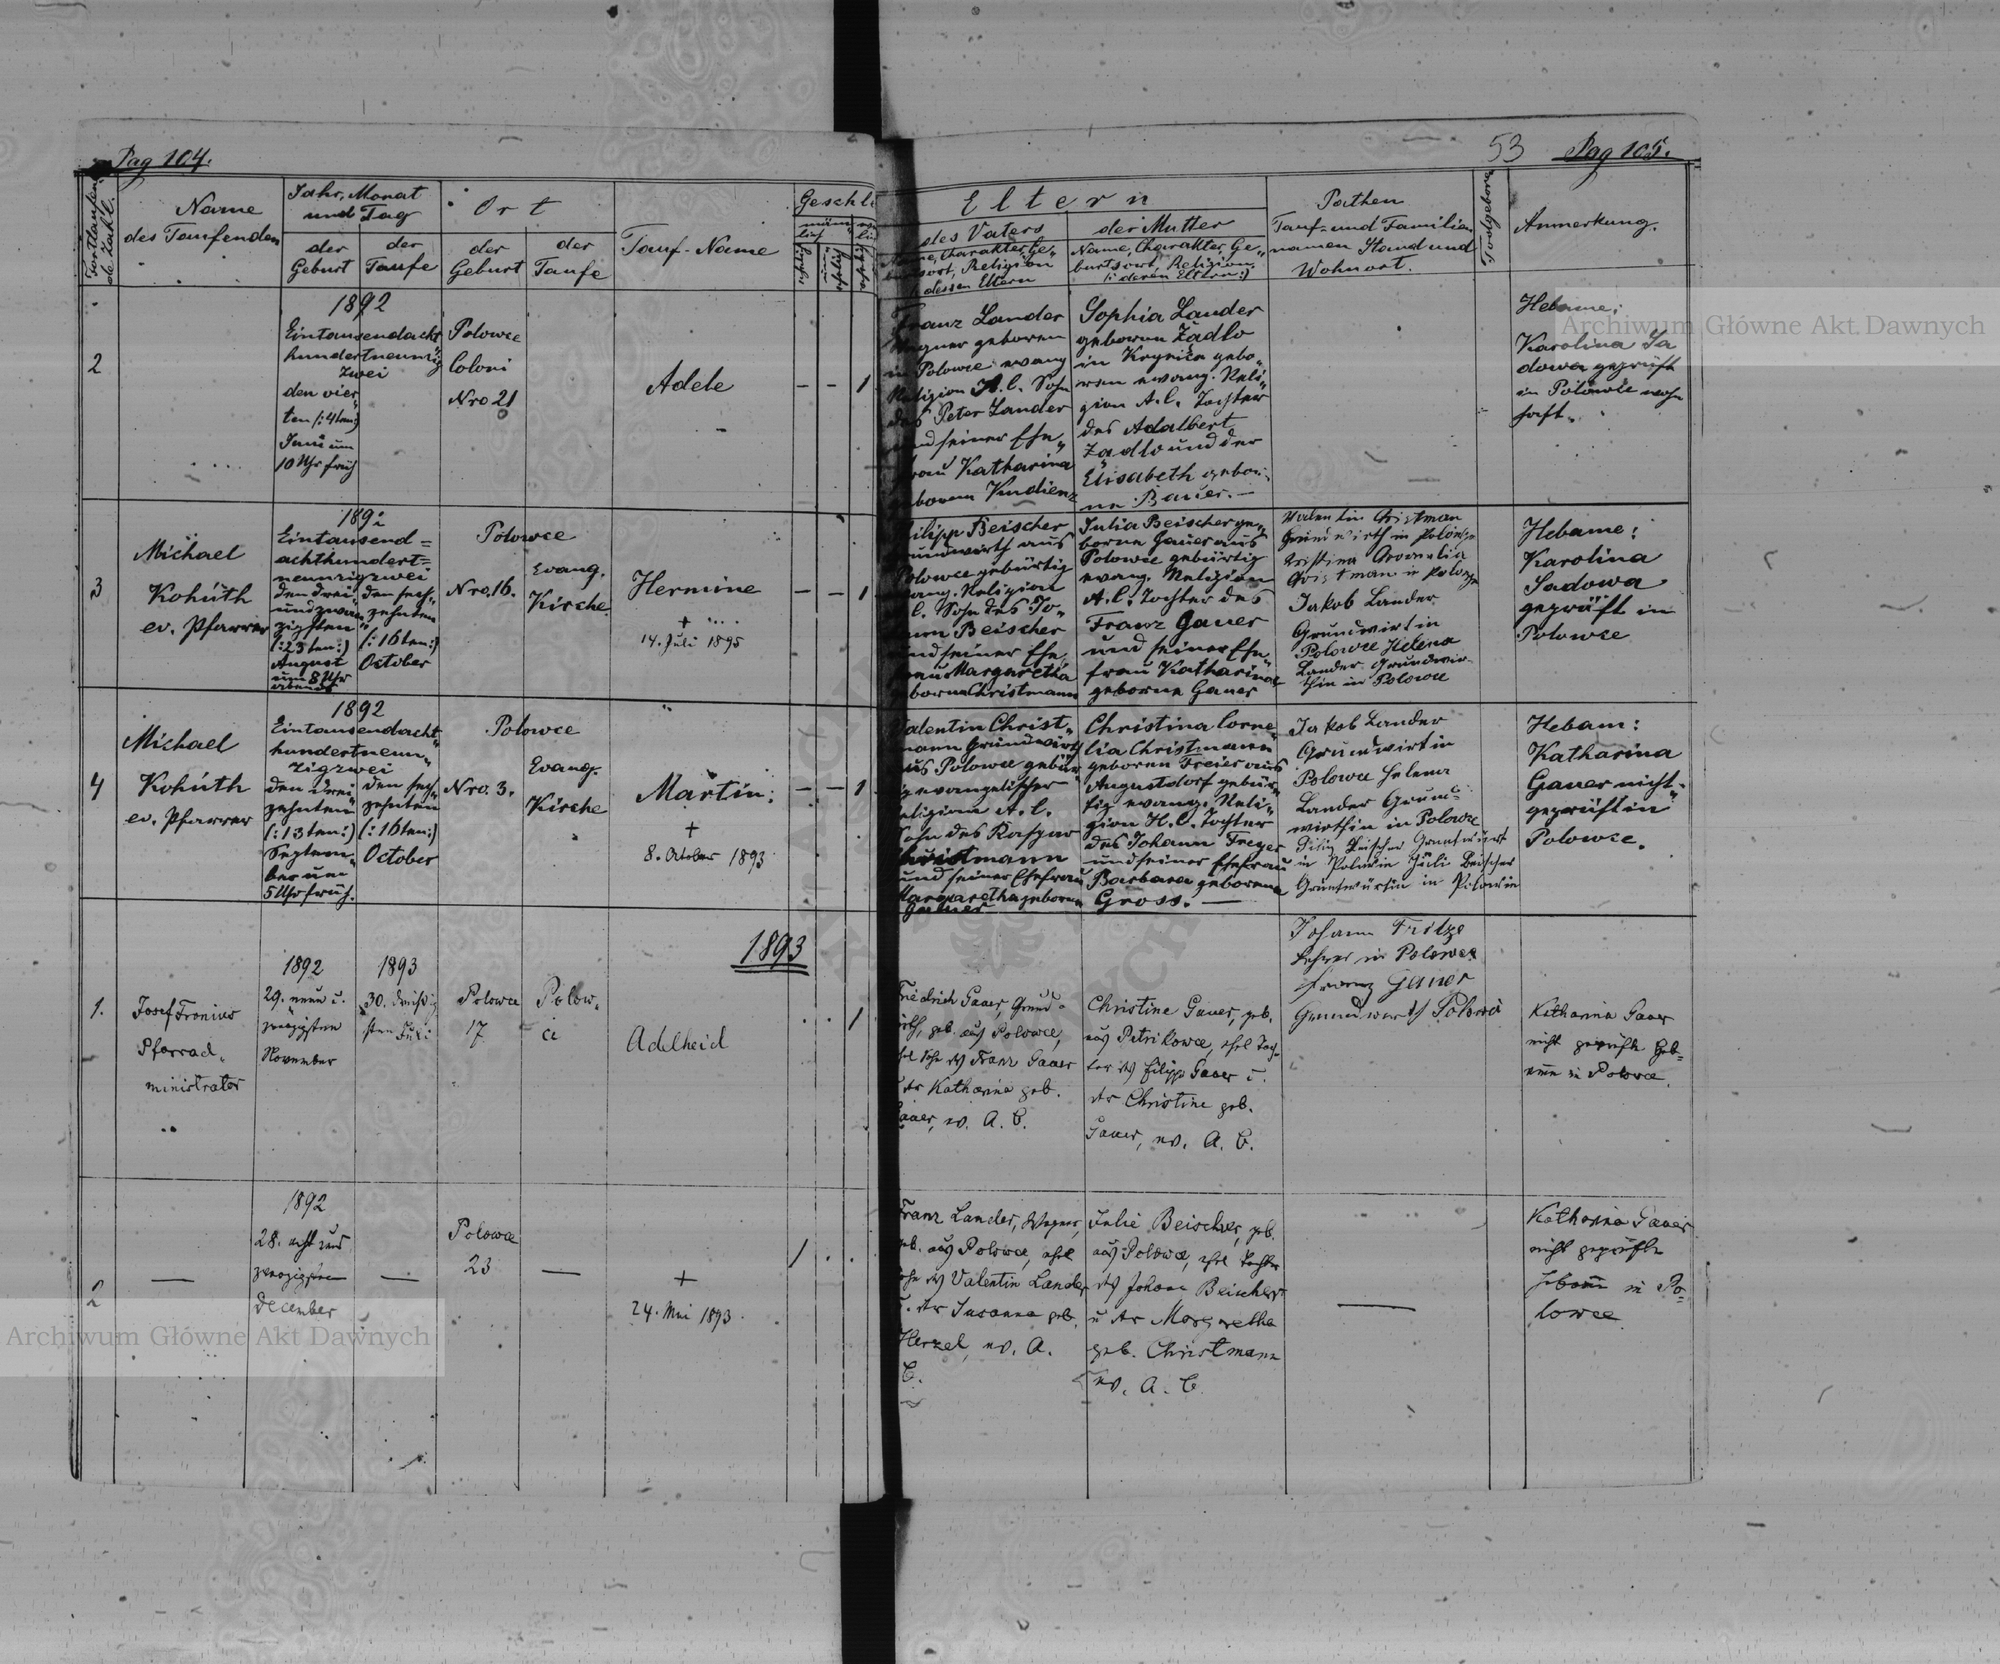 Pag 104.
53 Pag 105.
Fortlaufende Zahl.
Name
des Taufenden
Jahr, Monat
und Tag
der
Geburt
der
Taufe
Ort
der
Geburt
der
Taufe
Tauf-Name
Geschl
Eltern
des Vaters
dessen Eltern
der Mutter
Name, Charakter, Ge-
burtsort, Religion
(: deren Eltern :)
Pathen
Tauf- und Familien
namen Stand und
Wohnort.
Todtgeborne
Anmerkung.
2
1892
Eintausendacht
hundertneunzig
zwei
den vier-
ten (: 4ten :)
Juni um
10 Uhr früh
Polowce
Coloni
Nro 21
Adele
– – 1
Franz Lander
Wagner geboren
in Polowce evang
Religion A. C. Sohn
des Peter Lander
und seiner Ehe-
frau Katharina
geboren
Sophia Lander
geboren Żadło
in Krynica gebo-
ren evang. Reli-
gion A. C. Tochter
des Adalbert
Żadło und der
Elisabeth gebor-
ne Bauer. –
Hebame:
Karolina Sa
dowa geprüft
in Polowce wohn
haft.
3
Michael
Kohúth
ev. Pfarrer
1892
Eintausend=
achthundert=
neunzigzwei
den drei
und zwan-
zigsten
(: 23ten :)
August
um 8 Uhr
abends
den sech-
zehnten
(: 16ten :)
October
Polowce
Nro. 16.
Evang.
Kirche
Hermine
+
14. Juli 1895
– – 1
Philipp Beischer
Grundwirth aus
Polowce gebürtig
evang. Religion
A. C. Sohn des Jo-
hann Beischer
und seiner Ehe
frau Margaretha
geborne Christmann
Julia Beischer ge-
borne Gauer aus
Polowce gebürtig
evang. Religion
A. C. Tochter des
Franz Gauer
und seiner Ehe-
frau Katharina
geborne Gauer
Valentin Christman
Grundwirth in Polowce
Christman in Polowce
Jakob Lander
Grundwirt in
Polowce Helena
Lander Grundwir-
thin in Polowce
Hebame:
Karolina
Sadowa
geprüft in
Polowce
4
Michael
Kohúth
ev. Pfarrer
1892
Eintausendacht-
hundertneun-
zigzwei
den drei-
zehnten
(: 13ten :)
Septem-
ber um
5 Uhr früh.
den sech-
zehnten
(: 16ten :)
October
Polowce
Nro. 3.
Evang.
Kirche
Martin:
+
8. October 1893
– – 1
Valentin Christ-
mann Grundwirth
aus Polowce gebür-
tig evangelischer
Religion A. C.
Sohn des Kaspar
Christmann
und seiner Ehefrau
Margaretha geborne
Gauer
Christina Corne-
lia Christmann
geboren Freier aus
Augustdorf gebür-
tig evang. Reli-
gion H. C. Tochter
des Johann Freyer
und seiner Ehefrau
Barbara geborene
Gross. –
Jakob Lander
Grundwirt in
Polowce Helena
Lander Grund-
wirthin in Polowce
Beischer
in Juli Beischer
in
Hebam:
Katharina
Gauer nicht-
geprüft in
Polowce.
1893
1.
Josef Fronius
Pfarrad-
ministrator
1892
29. neun u.
zwanzigsten
November
1893
30. dreißig
sten Juli
Polowce
17
Polow-
ce
Adelheid
1
Friedrich Gauer, Grund-
wirth, geb. aus Polowce,
ehel Sohn des Franz Gauer
u. der Katharina geb.
Gauer, ev. A. C.
Christine Gauer, geb.
aus Petrikowce, ehel Toch-
ter des Filipp Gauer u.
der Christine geb.
Gauer, ev. A. C.
Johann Fritze
Lehrer in Polowce
Franz Gauer
Grundwirth Polowce
Katharina Gauer
nicht geprüfte Heb-
amme in Polowce.
2
—
1892
28. acht und
zwanzigsten
December
—
Polowce
23
—
+
24. Mai 1893.
1
Franz Lander, Wagner,
geb. aus Polowce, ehel
Sohn des Valentin Lander
u. der Susanna geb.
Herzel, ev. A.
C.
Julie Beischer, geb.
aus Polowce, ehel Tochter
des Johann Beischer
u der Margaretha
geb. Christmann
ev. A. C.
—
Katharina Gauer
nicht geprüfte
Hebamme in Po-
lowce
Archiwum Główne Akt Dawnych
Archiwum Główne Akt Dawnych